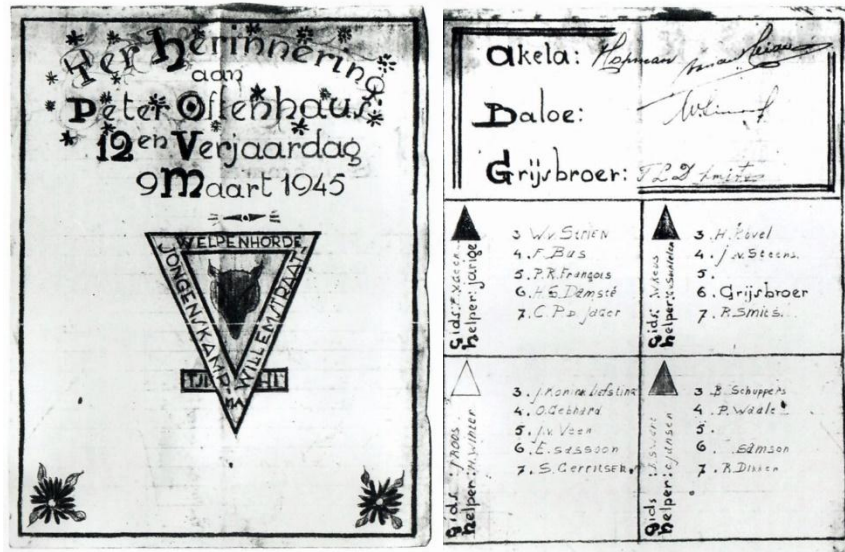 Ter herinnering
aan
Peter Ostenhaus
12en Verjaardag
9 Maart 1945
WELPENHORDE
JONGENSKAMP
WILLEMSTRAAT
TJIMAHI
Akela: Hopman
Baloe:
Grijsbroer: T L D Smits
Gids:
helper: jarige
3 W.v Strien
4. F. Bus
5. P.R. François
6. H.S. Damsté
7. C.P.D. Jager
Gids:
helper:
3. H. Kovel
4. J. v. Steens
5.
6. Grijsbroer
7. R. Smies.
Gids: J ROOS
helper: N. WINTER
3. J. Konink Liefsting
4. O. Gebhard
5. J. v. Veen
6. E. Sassoon
7. S. Gerritsen
Gids:
helper: C. Jansen
3 B. Schuppers
4. P. Waale
5.
6 Samson
7. R. Dikken